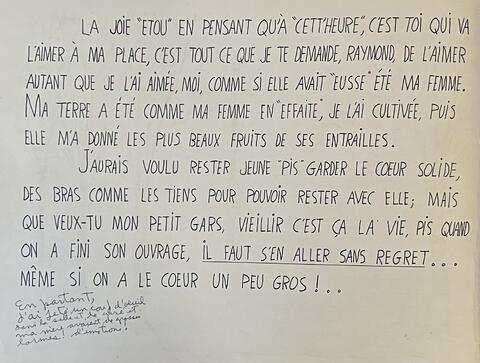 LA JOIE "ETOU" EN PENSANT QU'À "CETT'HEURE", C'EST TOI QUI VA
L'AIMER À MA PLACE, C'EST TOUT CE QUE JE TE DEMANDE, RAYMOND, DE L'AIMER
AUTANT QUE JE L'AI AIMÉE, MOI, COMME SI ELLE AVAIT "EUSSE" ÉTÉ MA FEMME.
MA TERRE A ÉTÉ COMME MA FEMME EN "EFFAITE", JE L'AI CULTIVÉE, PUIS
ELLE M'A DONNÉ LES PLUS BEAUX FRUITS DE SES ENTRAILLES.
J'AURAIS VOULU RESTER JEUNE "PIS" GARDER LE COEUR SOLIDE,
DES BRAS COMME LES TIENS POUR POUVOIR RESTER AVEC ELLE; MAIS
QUE VEUX-TU MON PETIT GARS, VIEILLIR C'EST ÇA LA VIE, PIS QUAND
ON A FINI SON OUVRAGE, IL FAUT S'EN ALLER SANS REGRET...
MÊME SI ON A LE COEUR UN PEU GROS!..
En partant,
j'ai jeté un coup d'oeil
dans la salle et, le père et
ma mère avaient de grosses
larmes! d'émotions!